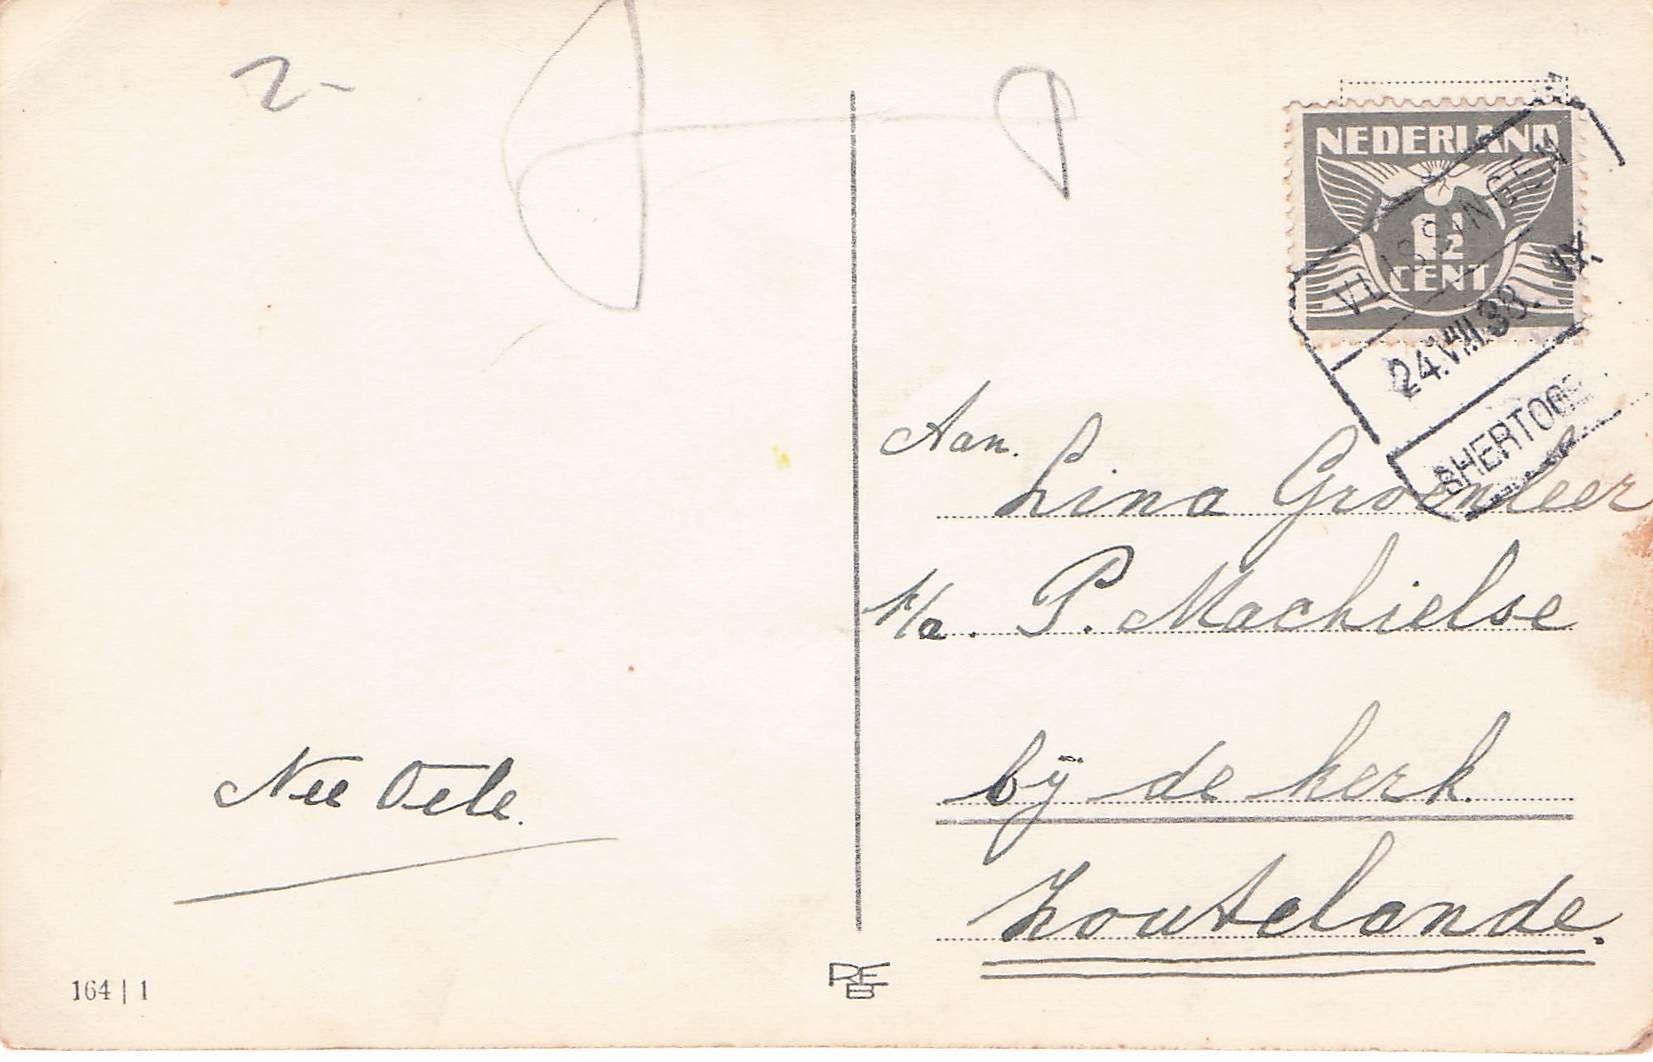 2-
NEDERLAND
1½
CENT
VLISSINGEN
24.VIII.38. IX
SHERTOGE
Aan.
Lina Groenleer
p/a. P. Machielse
bij de kerk.
Zoutelande.
Nee Oele.
164 | 1
REB